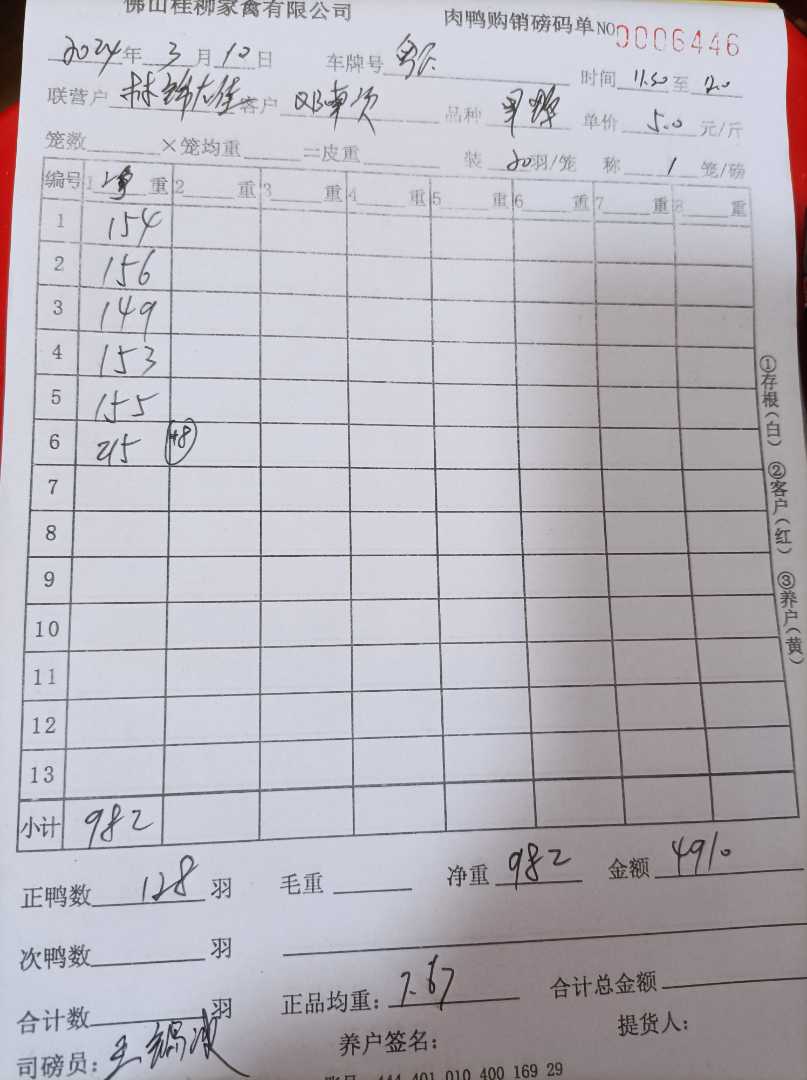 佛山桂柳家禽有限公司
肉鸭购销磅码单 NO 0006446
2024年 3 月 10 日 车牌号 时间 11.50 至 12.0
联营户 客户 品种 单价 5.0 元/斤
笼数 ×笼均重 =皮重 装 20 羽/笼 称 1 笼/磅
编号 1 重 2 重 3 重 4 重 5 重 6 重 7 重 8 重
1 154
2 156
3 149
4 153
5 155
6 215 +8
7
8
9
10
11
12
13
小计 982
正鸭数 128 羽 毛重 净重 982 金额 4910
次鸭数 羽
合计数 羽 正品均重: 7.67 合计总金额
司磅员: 养户签名: 提货人:
444 401 010 400 169 29
①存根(白) ②客户(红) ③养户(黄)